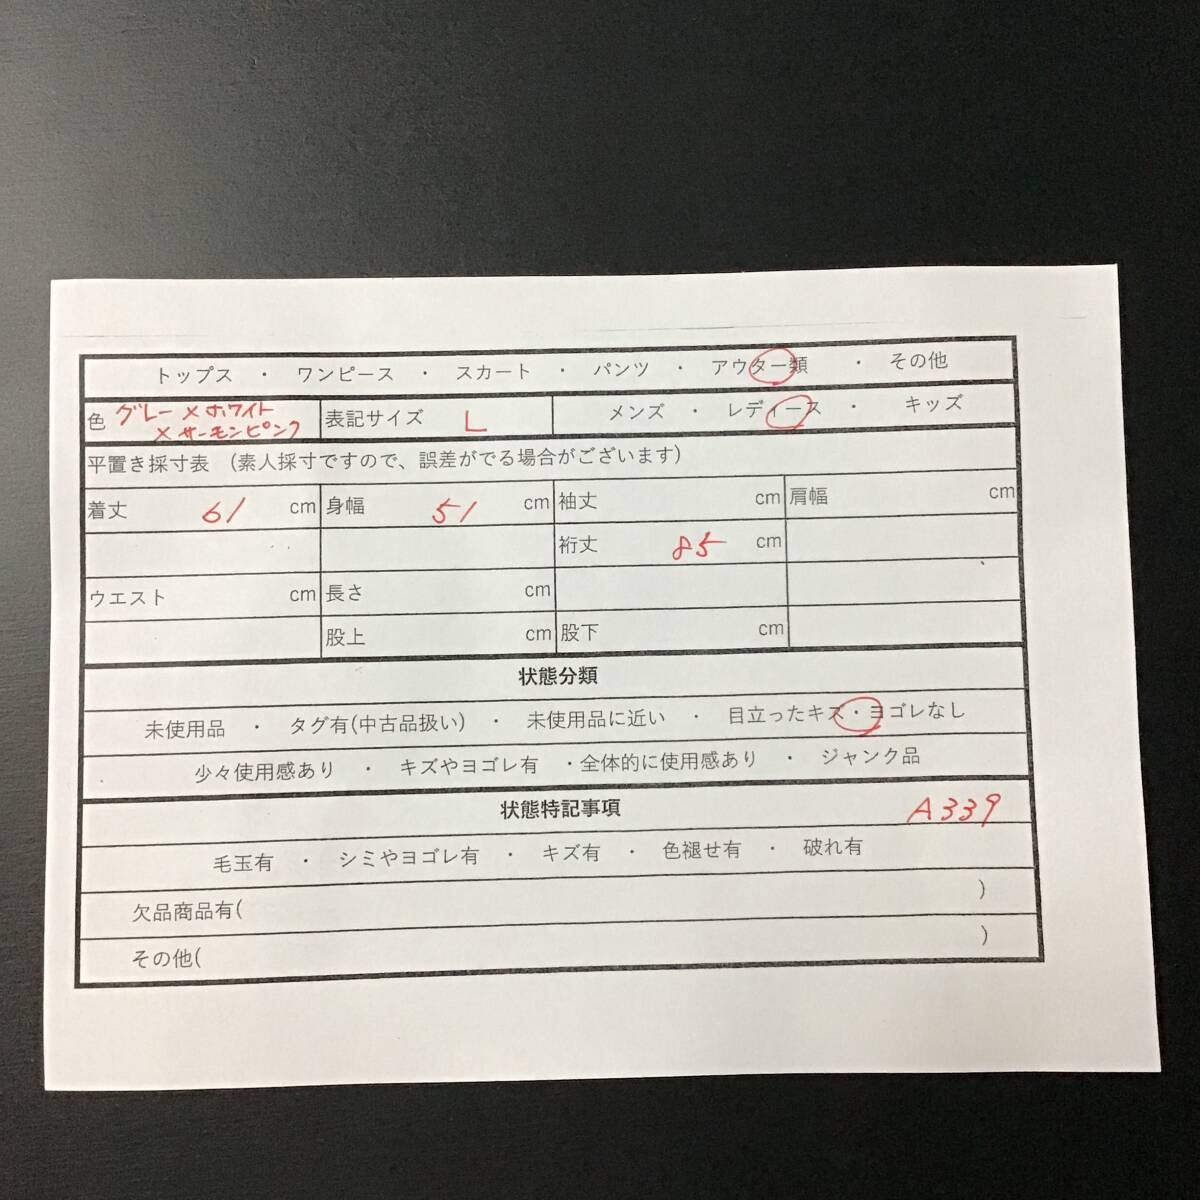 トップス ・ ワンピース ・ スカート ・ パンツ ・ アウター類 ・ その他
色 グレー×ホワイト×サーモンピンク 表記サイズ L メンズ ・ レディース ・ キッズ
平置き採寸表 (素人採寸ですので、誤差がでる場合がございます)
着丈 61 cm 身幅 51 cm 袖丈 cm 肩幅 cm
裄丈 85 cm
ウエスト cm 長さ cm
股上 cm 股下 cm
状態分類
未使用品 ・ タグ有(中古品扱い) ・ 未使用品に近い ・ 目立ったキズ・ヨゴレなし
少々使用感あり ・ キズやヨゴレ有 ・全体的に使用感あり ・ ジャンク品
状態特記事項 A339
毛玉有 ・ シミやヨゴレ有 ・ キズ有 ・ 色褪せ有 ・ 破れ有
欠品商品有( )
その他( )